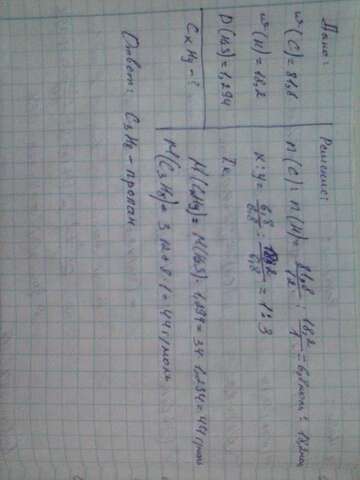 Дано:
w(C) = 81,8
w(H) = 18,2
D(H2S) = 1,294
CxHy - ?
Решение:
n(C) : n(H) = 81,8/12 : 18,2/1 = 6,8 моль : 18,2 моль
x : y = 6,8/6,8 : 18,2/6,8 = 1 : 3
M(CxHy) = M(H2S) · 1,294 = 34 · 1,294 = 44 г/моль
M(C3H8) = 3 · 12 + 8 · 1 = 44 г/моль
Ответ: C3H8 - пропан